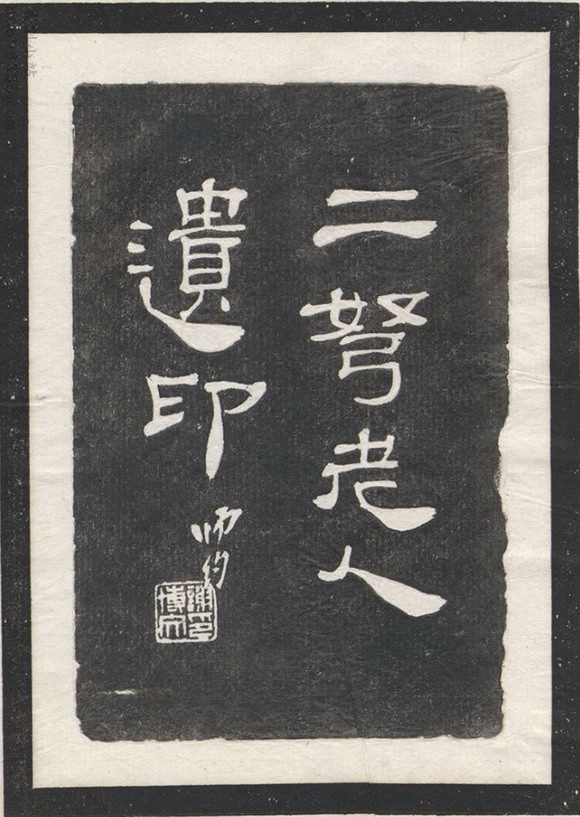 二弩老人
遺印
师约
謝印博文